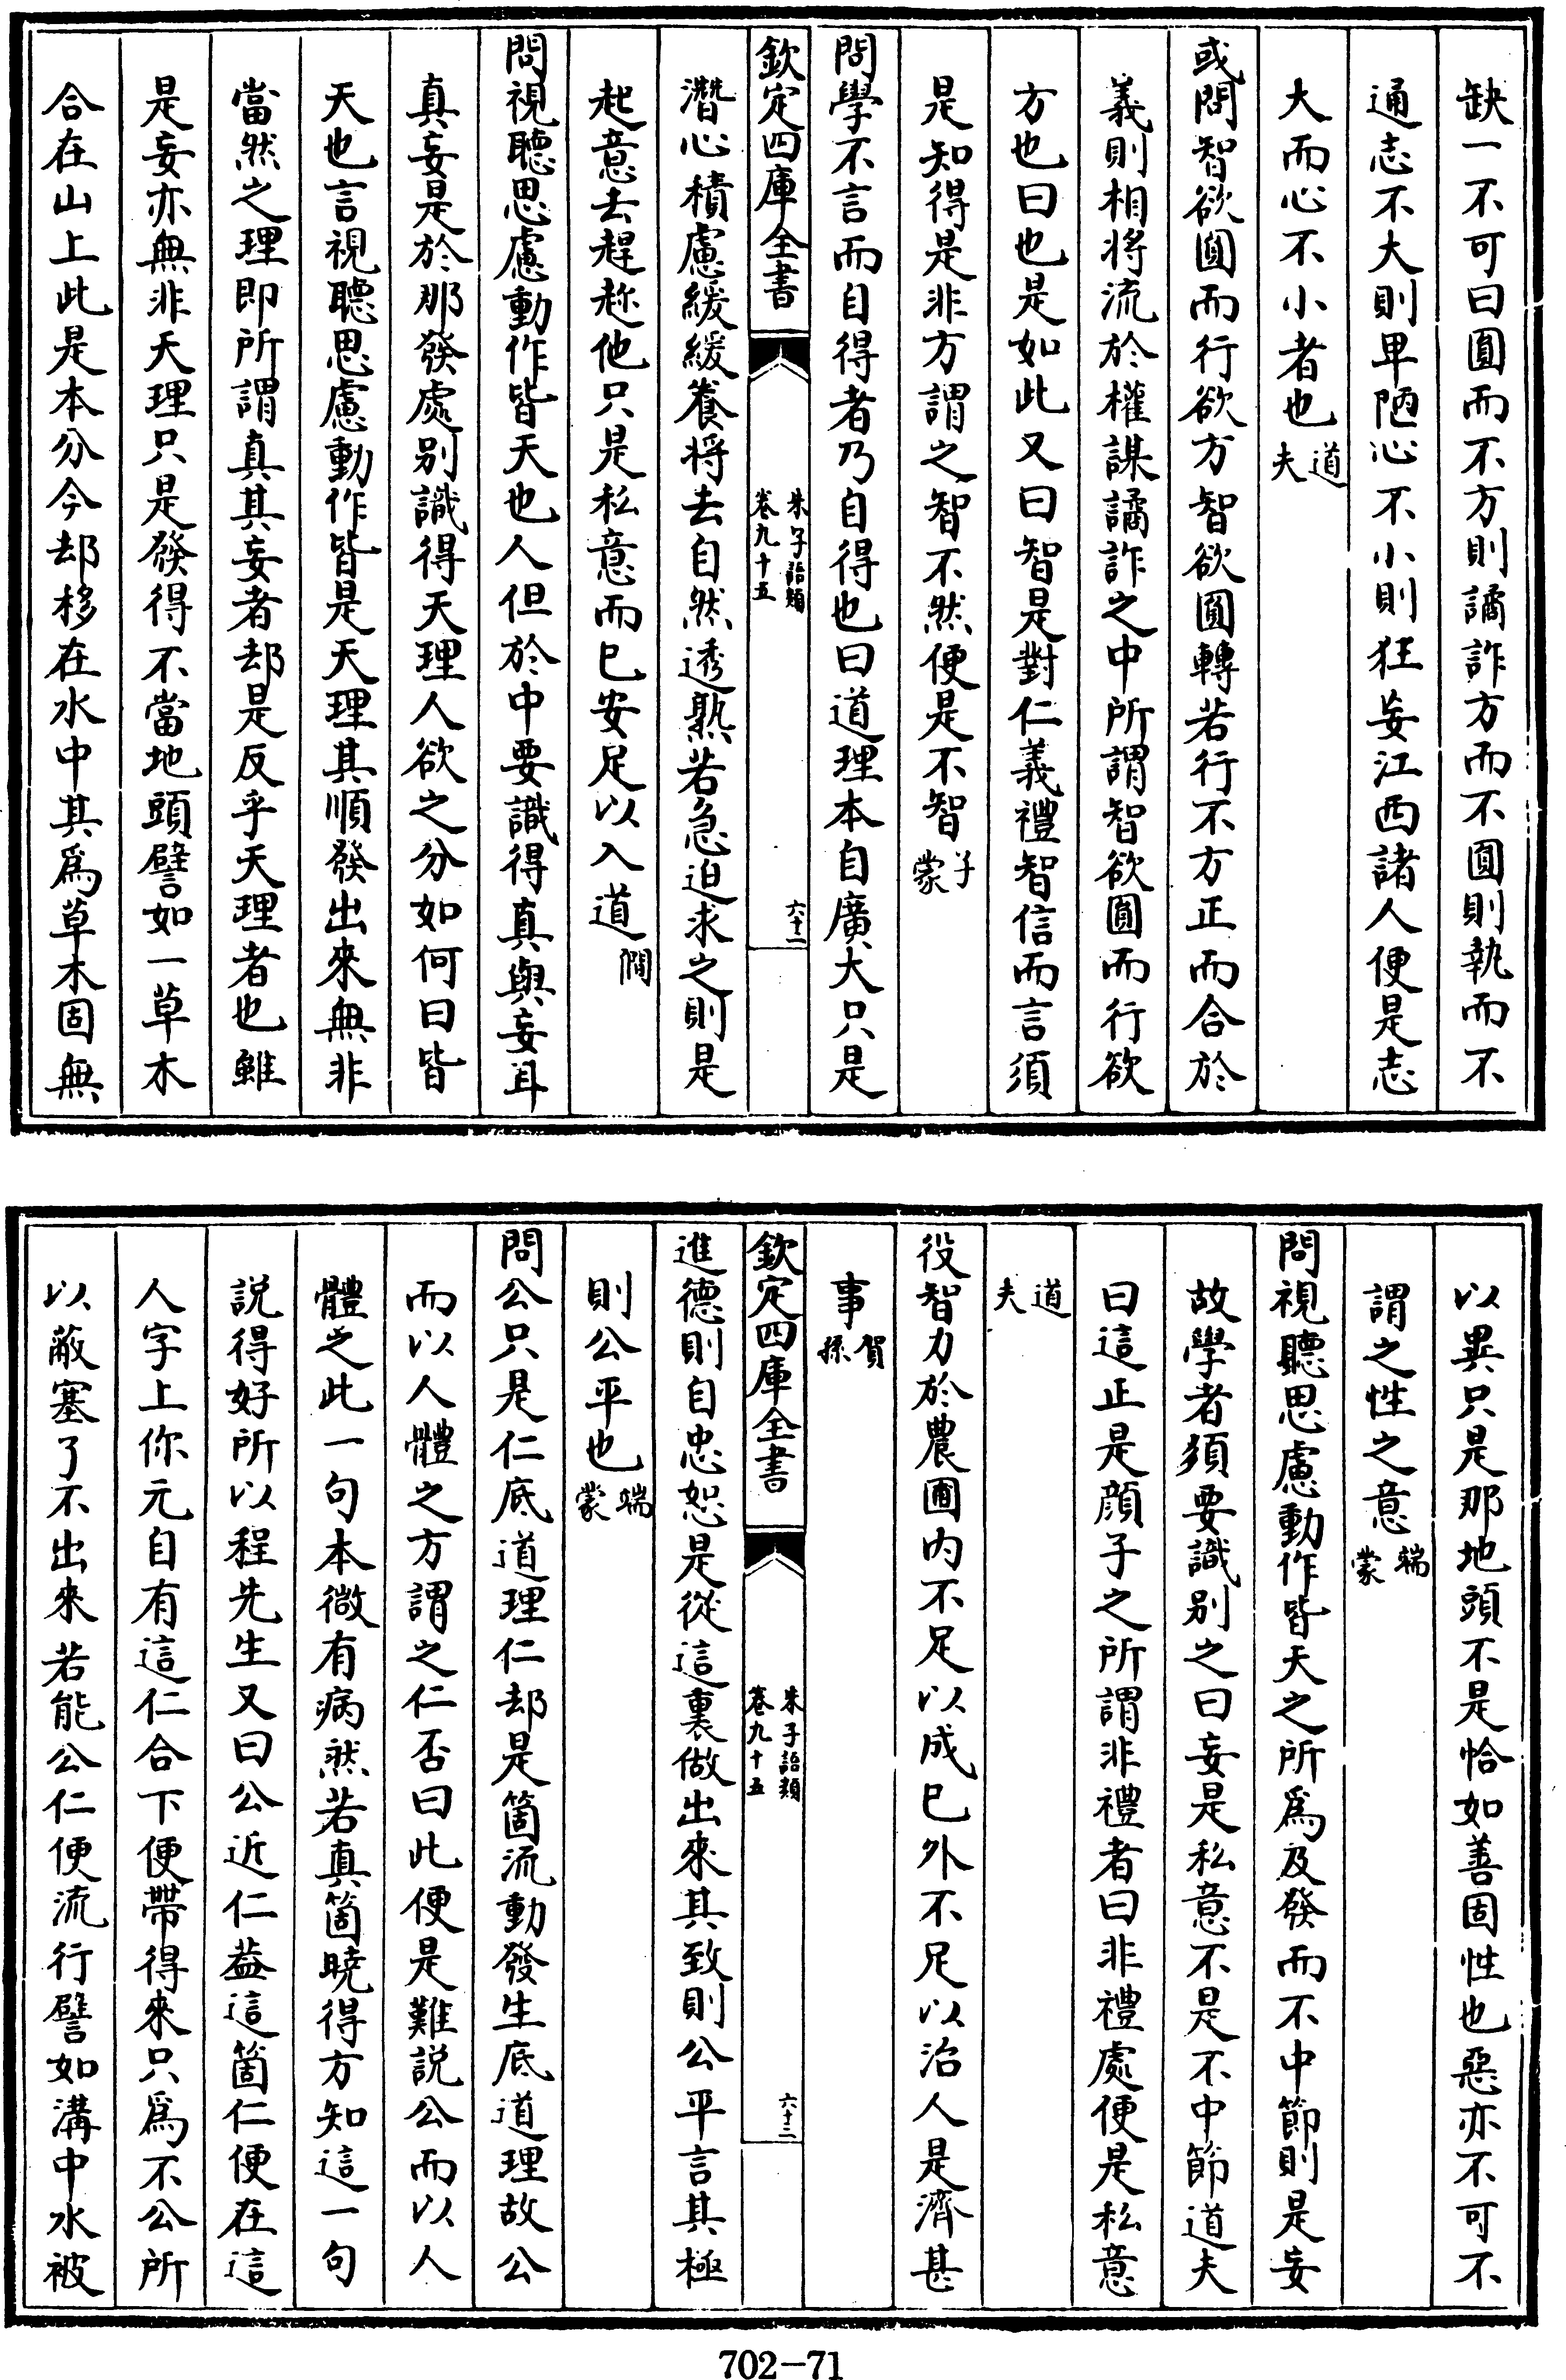 缺一不可曰圓而不方則譎詐方而不圓則執而不
通志不大則卑陋心不小則狂妄江西諸人便是志
大而心不小者也道夫
或問智欲圓而行欲方智欲圓轉若行不方正而合於
義則相將流於權謀譎詐之中所謂智欲圓而行欲
方也曰也是如此又曰智是對仁義禮智信而言須
是知得是非方謂之智不然便是不智子蒙
問學不言而自得者乃自得也曰道理本自廣大只是
欽定四庫全書
朱子語類
卷九十五
六十二
潛心積慮緩緩養將去自然透熟若急迫求之則是
起意去趕趂他只是私意而已安足以入道僩
問視聽思慮動作皆天也人但於中要識得真與妄耳
真妄是於那發處别識得天理人欲之分如何曰皆
天也言視聽思慮動作皆是天理其順發出來無非
當然之理即所謂真其妄者却是反乎天理者也雖
是妄亦無非天理只是發得不當地頭譬如一草木
合在山上此是本分今却移在水中其爲草木固無
以異只是那地頭不是恰如善固性也惡亦不可不
謂之性之意端蒙
問視聽思慮動作皆天之所爲及發而不中節則是妄
故學者須要識别之曰妄是私意不是不中節道夫
曰這正是顔子之所謂非禮者曰非禮處便是私意
道夫
役智力於農圃内不足以成已外不足以治人是濟甚
事賀孫
欽定四庫全書
朱子語類
卷九十五
六十三
進德則自忠恕是從這裏做出來其致則公平言其極
則公平也端蒙
問公只是仁底道理仁却是箇流動發生底道理故公
而以人體之方謂之仁否曰此便是難説公而以人
體之此一句本微有病然若真箇曉得方知這一句
説得好所以程先生又曰公近仁葢這箇仁便在這
人字上你元自有這仁合下便帶得來只爲不公所
以蔽塞了不出來若能公仁便流行譬如溝中水被
702-71